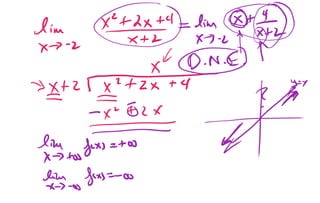 lim x→-2 (x²+2x+4)/(x+2) = lim x→-2 x + 4/(x+2)
D.N.E
x
x+2 ) x²+2x+4
-x² ⊕2x
y=x
lim x→+∞ f(x)=+∞
lim x→-∞ f(x)=-∞